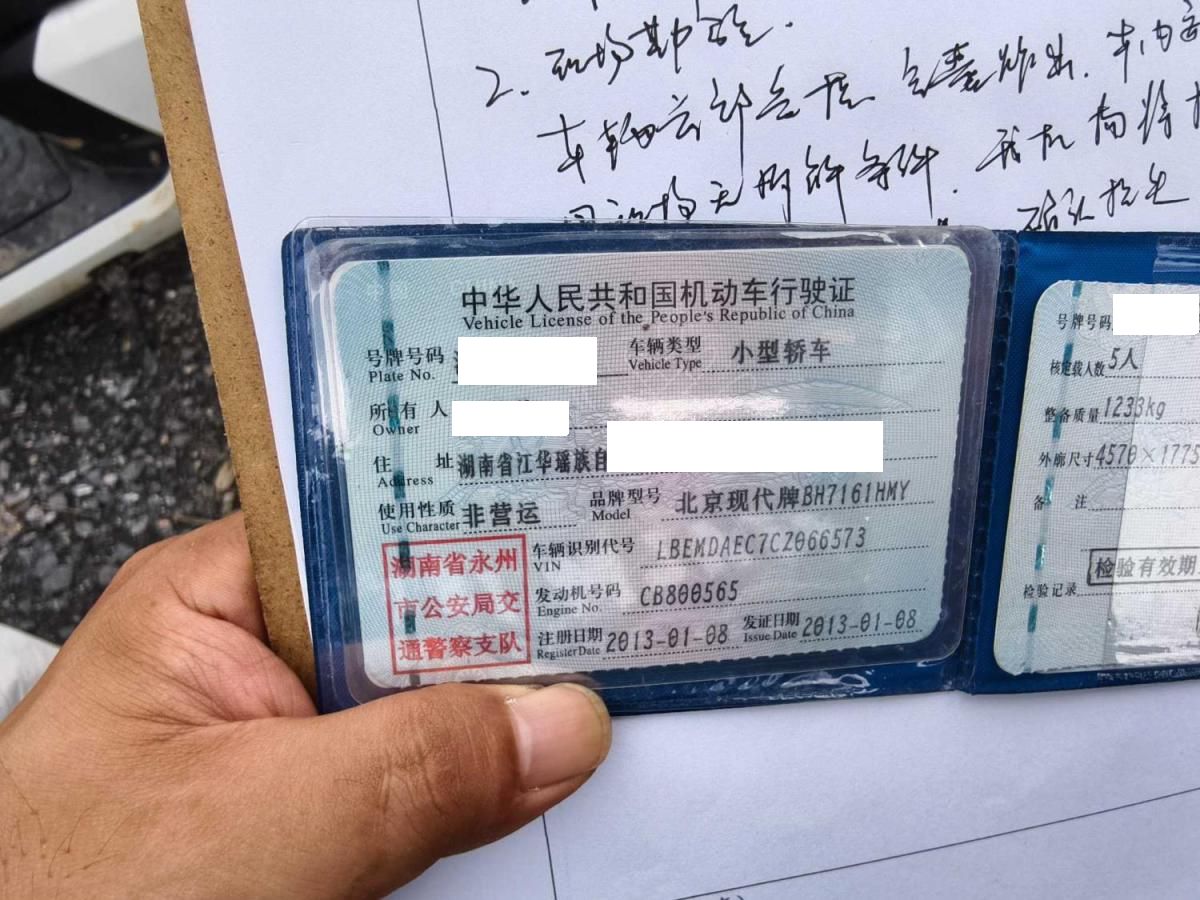 现场勘验.
2. 车辆云部岂损. 气囊炸出. 车内
无明的条件. 我机构将
确认
中华人民共和国机动车行驶证
Vehicle License of the People's Republic of China
号牌号码
Plate No.
车辆类型 小型轿车
Vehicle Type
所有人
Owner
住址 湖南省江华瑶族自
Address
使用性质 非营运
Use Character
品牌型号 北京现代牌BH7161HMY
Model
湖南省永州
市公安局交
通警察支队
车辆识别代号 LBEMDAEC7CZ066573
VIN
发动机号码 CB800565
Engine No.
注册日期 2013-01-08
Register Date
发证日期 2013-01-08
Issue Date
号牌号码
核定载人数 5人
整备质量 1233kg
外廓尺寸 4570×1775
备注
检验有效期
检验记录